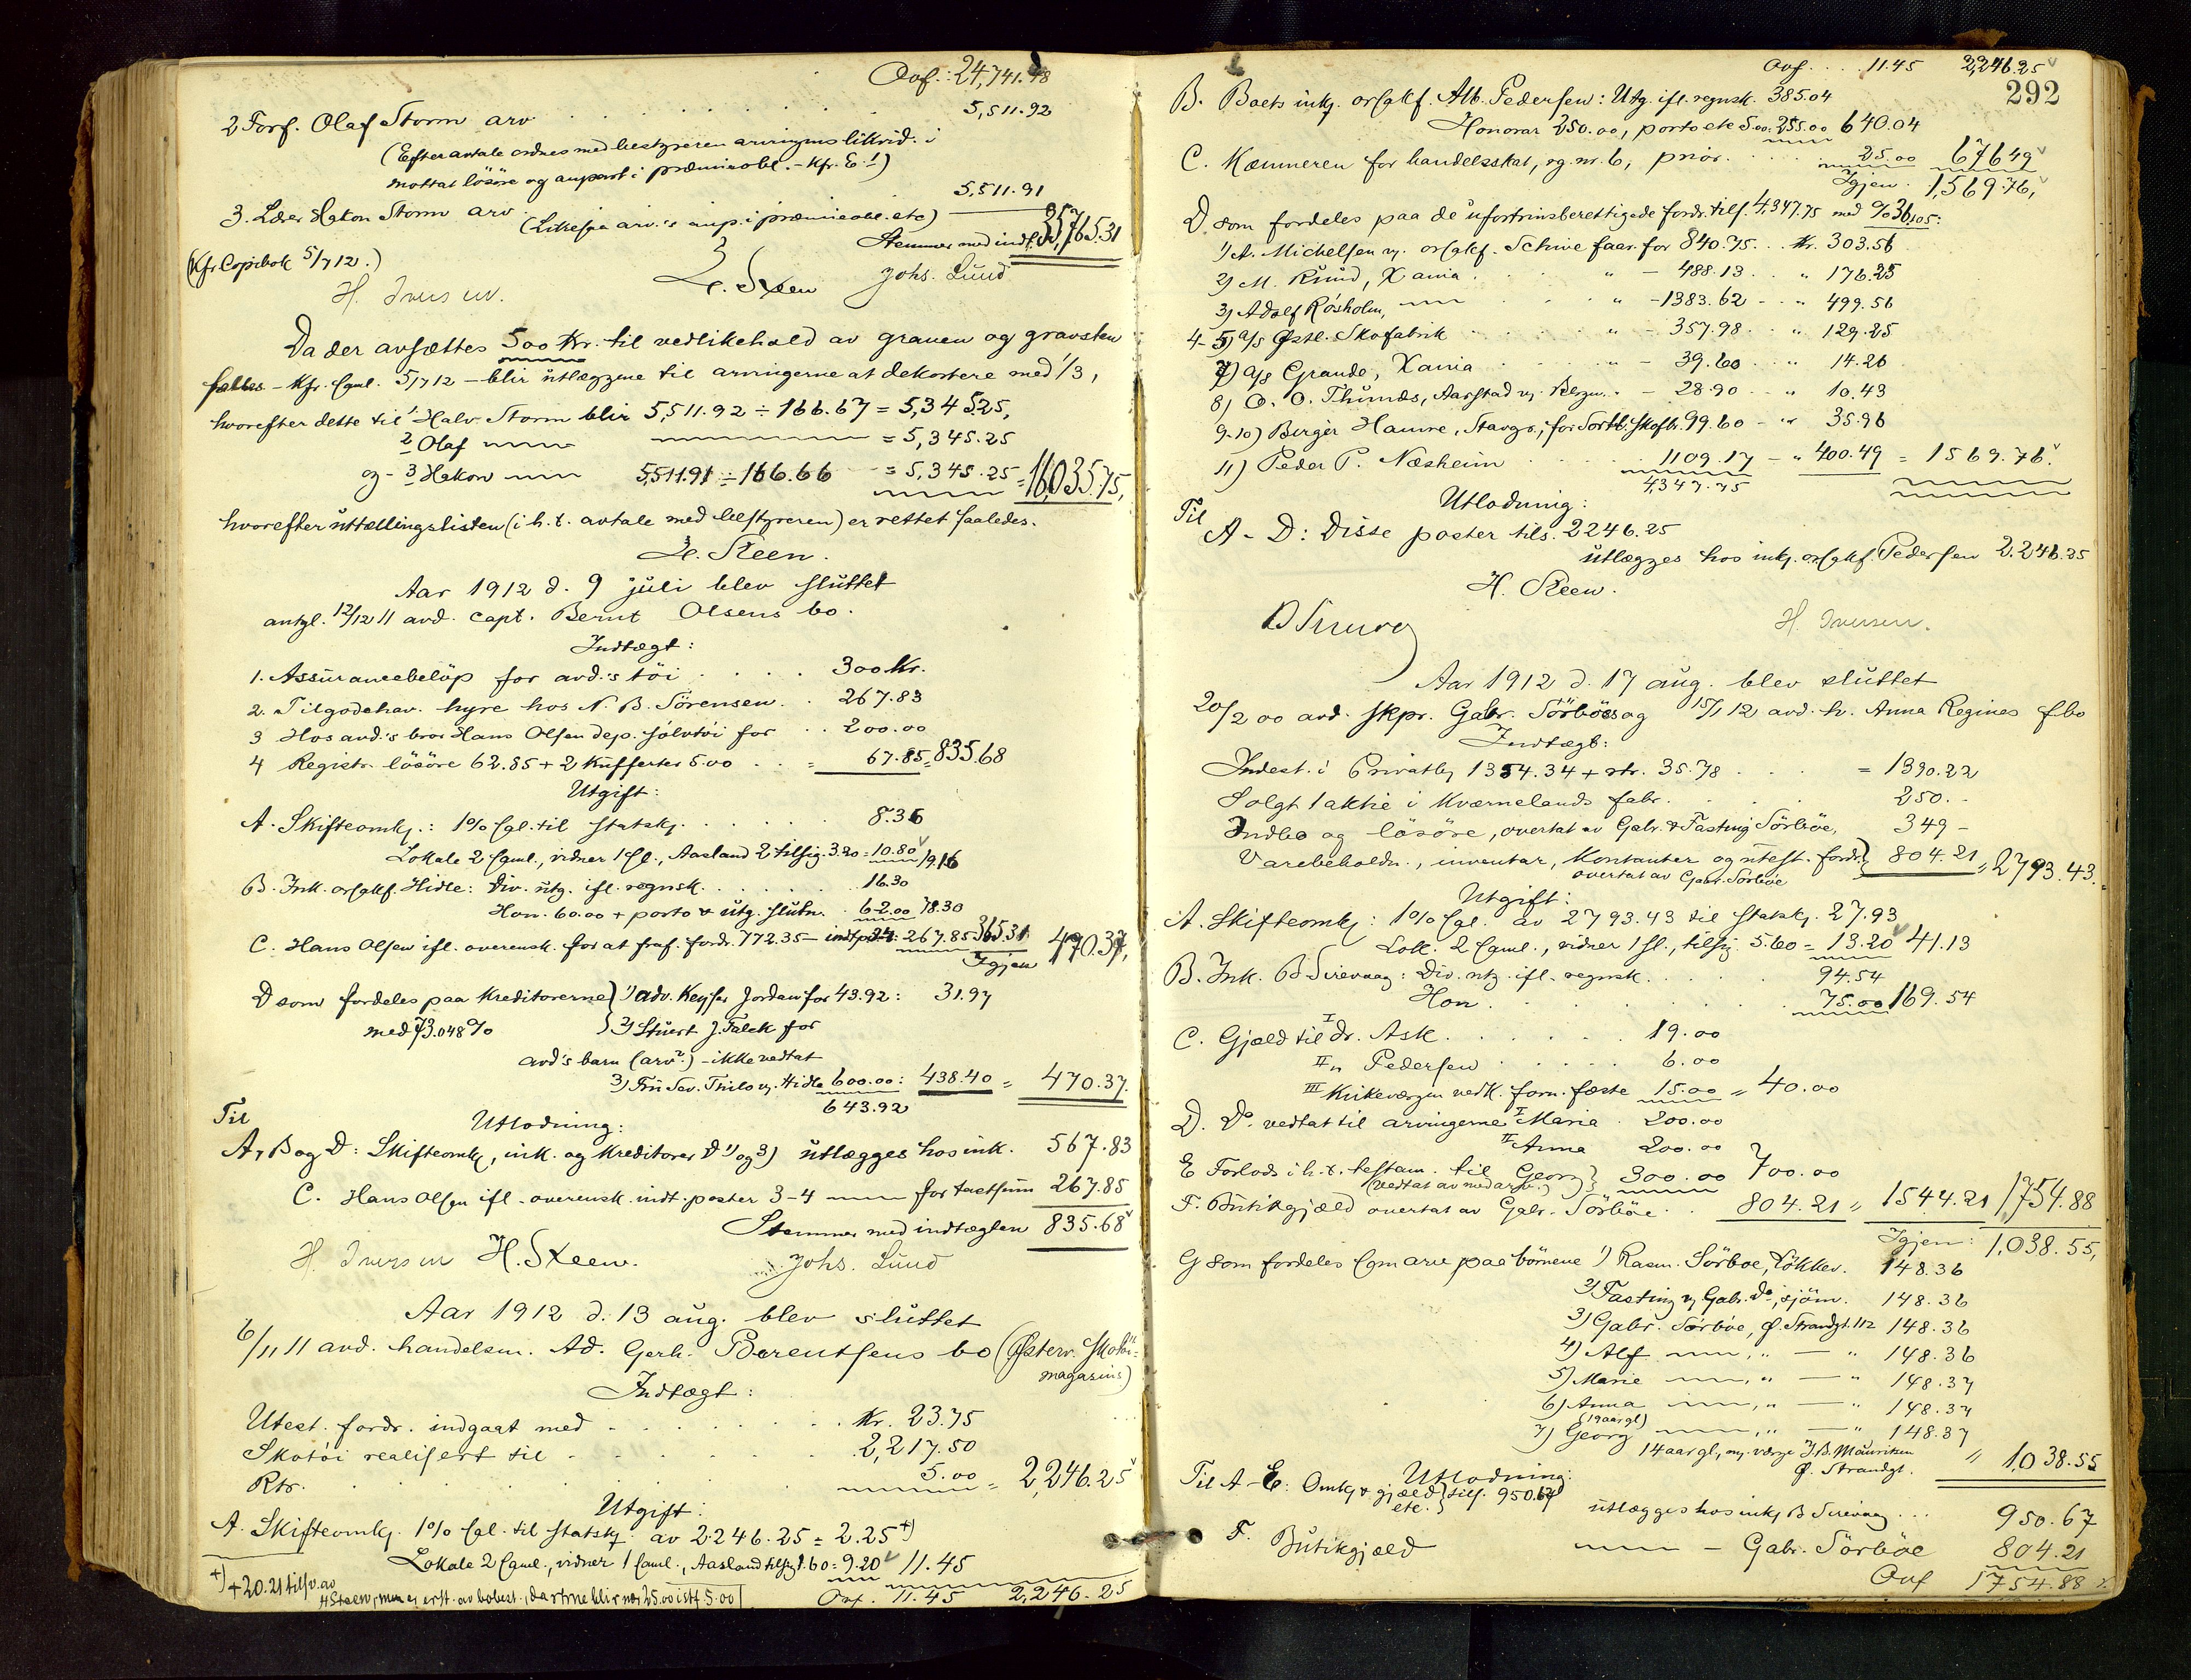 Ovf.: 24,741.48
2 Forf. Olaf Storm arv . . . . . . 5,511.92
(Efter avtale ordnes med bestyreren arvingens likvid. i
mottat lösöre og anpart i præmieobl. - Kfr. E. 1)
3. Lærer Hakon Storm arv 5,511.91
(Likesaa arv.'s anp. i præmieobl. etc)
Stemmer med indt. 35,765.31
(Kfr Copibok 5/7 12.)
H. Iversen. H. Steen Johs. Lund
Da der avsættes 500 Kr. til vedlikehold av graven og gravsten
fælles - Kfr. saml. 5/7 12 - blir utlæggene til arvingerne at dekortere med 1/3,
hvorefter dette til 1 Halv. Storm blir 5,511.92 ÷ 166.67 = 5,345.25,
2 Olaf — — = 5,345.25
og - 3 Hakon — 5,511.91 ÷ 166.66 = 5,345.25 = 16,035.75,
hvorefter uttællingslisten (i h. t. avtale med bestyreren) er rettet saaledes.
H. Steen.
Aar 1912 d. 9 juli blev sluttet
antgl. 12/12 11 avd. capt. Bernt Olsens bo.
Indtægt:
1. Assurancebelöp for avd.'s töi . . . . 300 Kr.
2. Tilgodehav. hyre hos N. B. Sörensen . . 267.83
3 Hos avd.'s bror Hans Olsen dep. sölvtöi for . . 200.00
4 Registr. lösöre 62.85 + 2 Kufferter 5.00 . . = 67.85 = 835.68
Utgift:
A. Skifteomk.: 1% sgl. til statsk. . . . . . 8.36
Lokale 2 saml., vidner 1 sl., Aasland 2 tilsig. 3.20 = 10.80 19.16
B. Ink. orsakf. Hidle: Div. utg. ifl. regnsk. . . . . . 16.30
Hon. 60.00 + porto & utg. slutn. . 62.00 78.30
C. Hans Olsen ifl. overensk. for at fraf. fordr. 772.35 - indt. p. 3-4: 267.85 365.31
Igjen 470.37,
D som fordeles paa Kreditorerne } 1) adv. Keyser Jordan for 43.92: 31.97
med 73.048 % } 2) Stuert J. Falck for
avd's barn (arv?.) - ikke vedtat
3) Frü Sev. Thilo v. Hidle 600.00: 438.40 = 470.37.
643.92
Til Utlodning:
A, B og D: Skifteomk, ink. og Kreditorer D 1) og 3) utlægges hos ink. 567.83
C. Hans Olsen ifl. overensk. indt. poster 3-4 — for tactsum 267.85
Stemmer med indtægten 835.68
H. Iversen H. Steen. Johs. Lund
Aar 1912 d. 13 aug. blev sluttet
6/11 11 avd. handelsm. Ad. Gerh. Berentsens bo (Østerv. Skotöi-
magasins)
Indtægt:
Utest. fordr. indgaat med . . . . . . . Kr. 23.75
Skotöi realisert til . . . . . . 2,217.50
Rtr. . . . . . . 5.00 = 2,246.25
Utgift:
A. Skifteomk. 1% sgl. til statsk. av 2246.25 = 2.25 +)
Lokale 2 saml., vidner 1 saml., Aasland tilsig. 1.60 = 9.20 11.45
+) + 20.21 tilsv. av
H Steen, men ej erst. av bobest., da rtrne blir nær 25.00 istf. 5.00
Ovf. 11.45 2,246.25
Ovf. . . . 11.45 2,246.25
292
B. Boets ink. orsakf. Alb. Pedersen: Utg. ifl. regnsk. 385.04
Honorar 250.00, porto etc 5.00: 255.00 640.04
C. Kæmneren for handelsskat, rg. nr. 6, prior. . . . 25.00 676.49
Igjen . 1,569.76,
D. som fordeles paa de ufortrinsberettigede fordr. tils. 4,347.75 med % 36.105:
1) A. Michelsen v. orsakf. Schive faar for 840.75 . . Kr. 303.56
2) M. Rund, Xania . . . . " - 488.13 . . " 176.25
3) Adolf Røsholm, — . . . " - 1383.62 - . " 499.56
4-5) a/s Østl. Skofabrik . . . . . " - 357.98 . " 129.25
7) a/s Grande, Xania . . . . " - 39.60 . . " 14.26
8) O. O. Thunæs, Aarstad v. Bergen . . - 28.90 . . " 10.43
9-10) Birger Hauvre, Stavgr., for Sortl. skofbr. 99.60 - " 35.96
11) Peder P. Næsheim . . . . . 1109.17 - " 400.49 = 1569.76.
4,347.75
Utlodning:
Til
A - D: Disse poster tils. 2246.25
utlægges hos ink. orsakf. Pedersen 2.246.25
H. Steen.
B Sirevaag H. Iversen.
Aar 1912 d. 17 aug. blev sluttet
20/2 00 avd. skpr. Gabr. Sörböes og 15/1 12 avd. h. Anna Regines fbo
Indtægt:
Indest. i Privatbk 1354.34 + rtr. 35.78 . . . = 1390.22
Solgt 1 aktie i Kværnelands fabr. . . . . 250.-
Indbo og lösöre, overtat av Gabr. & Tasting Sörböe, 349 -
Varebeholdn., inventar, Kontanter og utest. fordr. } 804.21 = 2793.43.
overtat av Gabr. Sörböe
Utgift:
A. Skifteomk: 1% sgl. av 2793.43 til statsk. 27.93
Lok. 2 saml., vidner 1 sl., tilsig. 5.60 = 13.20 41.13
B. Ink. B Sirevaag: Div. utg. ifl. regnsk. . . . 94.54
Hon . . . . . . 75.00 169.54
C. Gjæld til I dr. Ask . . . . . 19.00
II " Pedersen . . . . . 6.00
III Kirkeværgen vedk. forn. fæste 15.00 = 40.00
D. Do. vedtat til arvingerne I Maria . 200.00
II Anna 200.00
E Forlods i h. t. testam. til Georg } 300.00 700.00
(vedtat av medarv.)
F. Butikgjæld overtat av Gabr. Sörböe . . 804.21 = 1544.21 1,754.88
Igjen: 1,038.55,
G som fordeles som arv paa börnene 1) Rasm. Sörboe, Lökkev. 148.36
2) Tasting v. Gabr. Do., sjöm. 148.36
3) Gabr. Sörböe, Ø. Strandgt. 112 148.36
4) Alf —, " — " 148.36
5) Marie —, " — " 148.37
6) Anna —, " — " 148.37
(19 aar gl)
7) Georg —, " — " 148.37
14 aar gl., m. værge J. B. Mauritzen
Ø. Strandgt. " 1,038.55
Utlodning:
Til A - E. Omk. & gjæld etc. } tils. 950.67
utlægges hos ink, B Sirevaag . . . 950.67
F. Butikgjæld — - Gabr. Sörböe 804.21
Ovf 1754.88